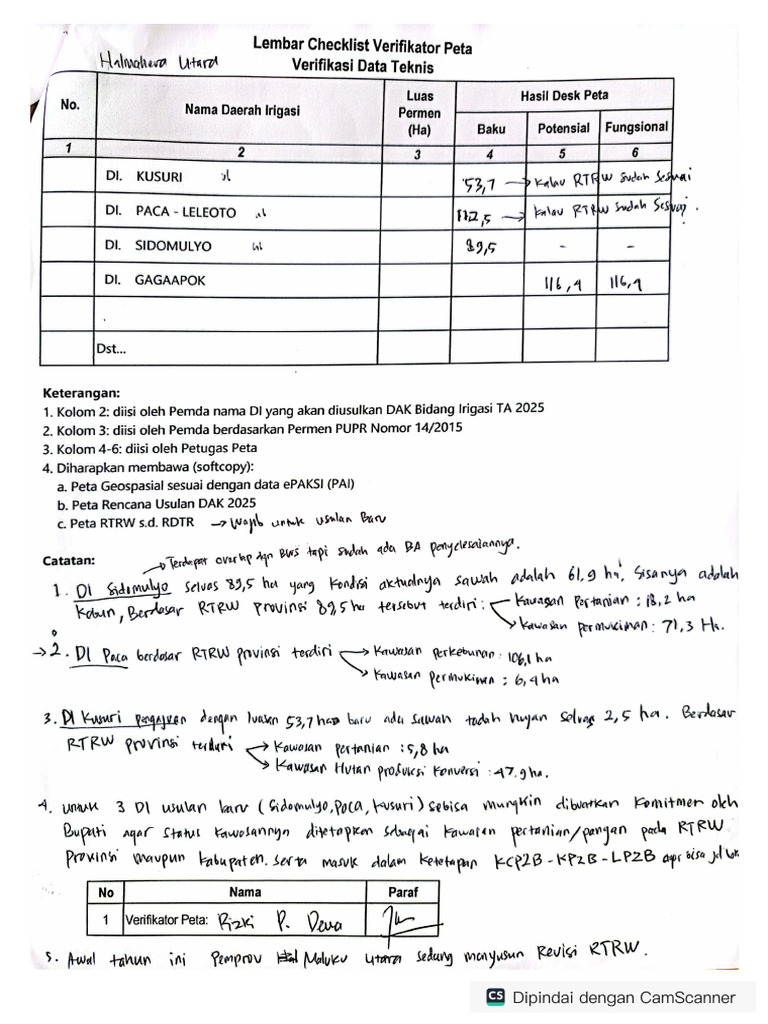 Lembar Checklist Verifikator Peta
Halmahera Utara
Verifikasi Data Teknis
No. Nama Daerah Irigasi Luas Permen (Ha) Hasil Desk Peta
Baku Potensial Fungsional
1 2 3 4 5 6
DI. KUSURI 53,7 → Kalau RTRW sudah sesuai
DI. PACA - LELEOTO 112,5 → Kalau RTRW sudah sesuai.
DI. SIDOMULYO 89,5 - -
DI. GAGAAPOK 116,9 116,9
Dst...
Keterangan:
1. Kolom 2: diisi oleh Pemda nama DI yang akan diusulkan DAK Bidang Irigasi TA 2025
2. Kolom 3: diisi oleh Pemda berdasarkan Permen PUPR Nomor 14/2015
3. Kolom 4-6: diisi oleh Petugas Peta
4. Diharapkan membawa (softcopy):
a. Peta Geospasial sesuai dengan data ePAKSI (PAI)
b. Peta Rencana Usulan DAK 2025
c. Peta RTRW s.d. RDTR → Wajib untuk usulan Baru
Catatan:
→ Terdapat overlap dgn BWS tapi sudah ada BA penyelesaiannya.
1. DI Sidomulyo seluas 89,5 ha yang kondisi aktualnya sawah adalah 61,9 ha, sisanya adalah
Kebun, Berdasar RTRW Provinsi 89,5 ha tersebut terdiri: → Kawasan Pertanian : 18,2 ha
→ Kawasan permukiman : 71,3 Ha.
→ 2. DI Paca berdasar RTRW provinsi terdiri → Kawasan Perkebunan : 106,1 ha
→ Kawasan Permukiman : 6,4 ha
3. DI Kusuri pengajuan dengan luasan 53,7 ha baru ada sawah tadah hujan seluas 2,5 ha. Berdasar
RTRW provinsi terdiri → Kawasan pertanian : 5,8 ha
→ Kawasan Hutan produksi Konversi : 47.9 ha.
4. untuk 3 DI usulan baru (Sidomulyo, Paca, Kusuri) sebisa mungkin dibuatkan komitmen oleh
Bupati agar status kawasannya ditetapkan sebagai kawasan pertanian/pangan pada RTRW
Provinsi maupun Kabupaten. serta masuk dalam ketetapan KCP2B - KP2B - LP2B agar bisa
No Nama Paraf
1 Verifikator Peta: Rizki P. Dewa
5. Awal tahun ini Pemprov Maluku Utara sedang menyusun Revisi RTRW.
CS Dipindai dengan CamScanner